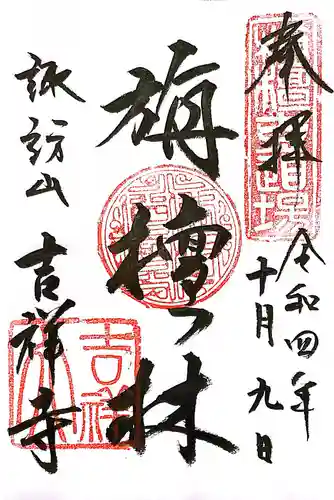 奉拝
令和四年
十月九日
旃檀林
諏訪山
吉祥寺